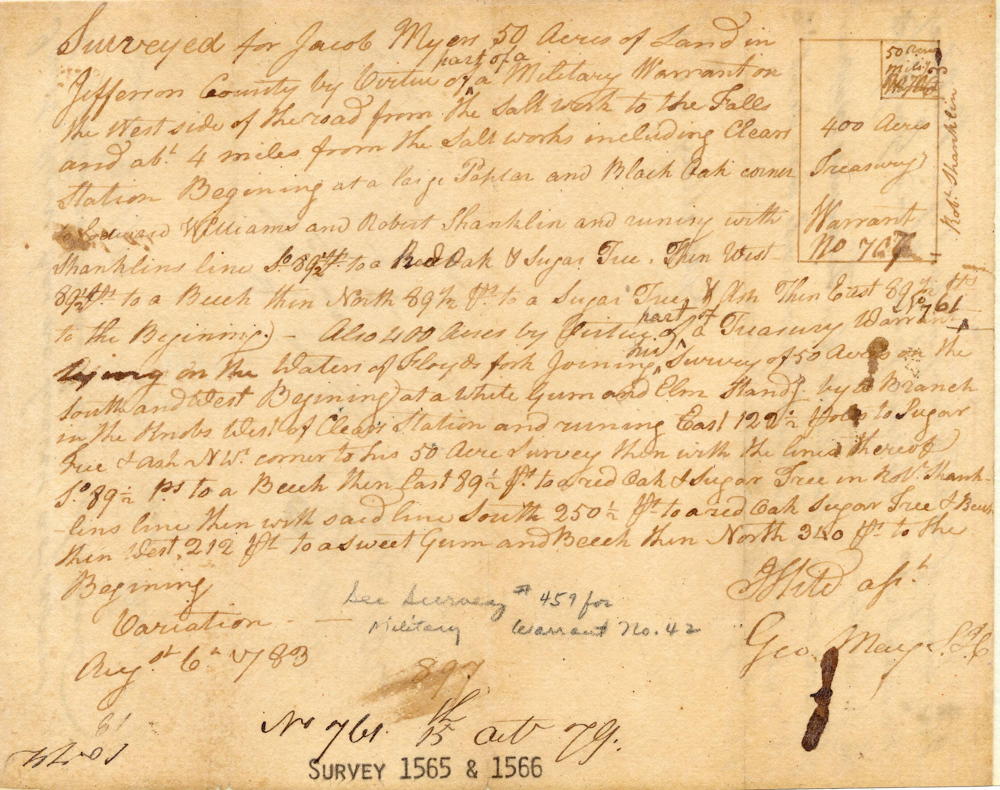 Surveyed for Jacob Myers 50 Acres of Land in
Jefferson County by Virtue part of a of a Military Warrant on
the West side of the road from the Salt work to the Falls
and abt 4 miles from the Salt works including Clears
Station Begining at a large Poplar and Black Oak corner
to Edward Williams and Robert Shanklin and runing with
Shanklins line So 89½ to a Red Oak & Sugar Tree. Then West
89½ to a Beech then North 89½ to a Sugar Tree & Ash Then East 89½
to the Begining. - Also 400 Acres by Virtue part of a Treasury Warrant No 761
lying on the Waters of Floyds fork Joining his Survey of 50 Acres on the
South and West Begining at a White Gum and Elm Standg by a Branch
in the Knobs West of Clears Station and runing East 122½ to Sugar
Tree & Ash N.W. corner to his 50 Acre Survey then with the lines thereof
So 89½ Ps to a Beech then East 89½ to a red Oak & Sugar Tree in Robt Shank-
-lins line then with said line South 250½ to a red Oak Sugar Tree & Beech
then West 212 to a Sweet Gum and Beech then North 340 to the
Begining
Variation - —
Augst 6th 1783
asst
Geo May
50 Acres
400 Acres
Treasury
Warrant
No 767
Robt Shanklin
See Survey # 459 for
Military Warrant No. 42
897
No 761 15th 79.
SURVEY 1565 & 1566